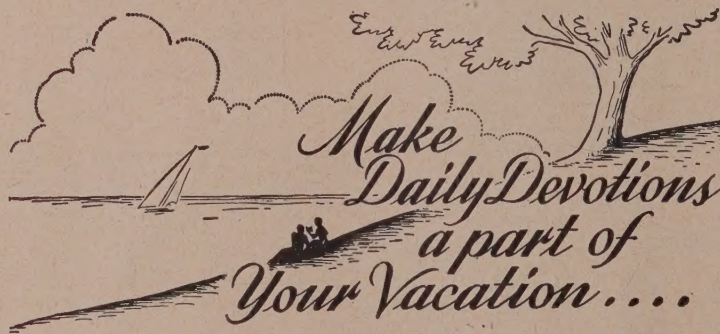 Make
Daily Devotions
a part of
Your Vacation....